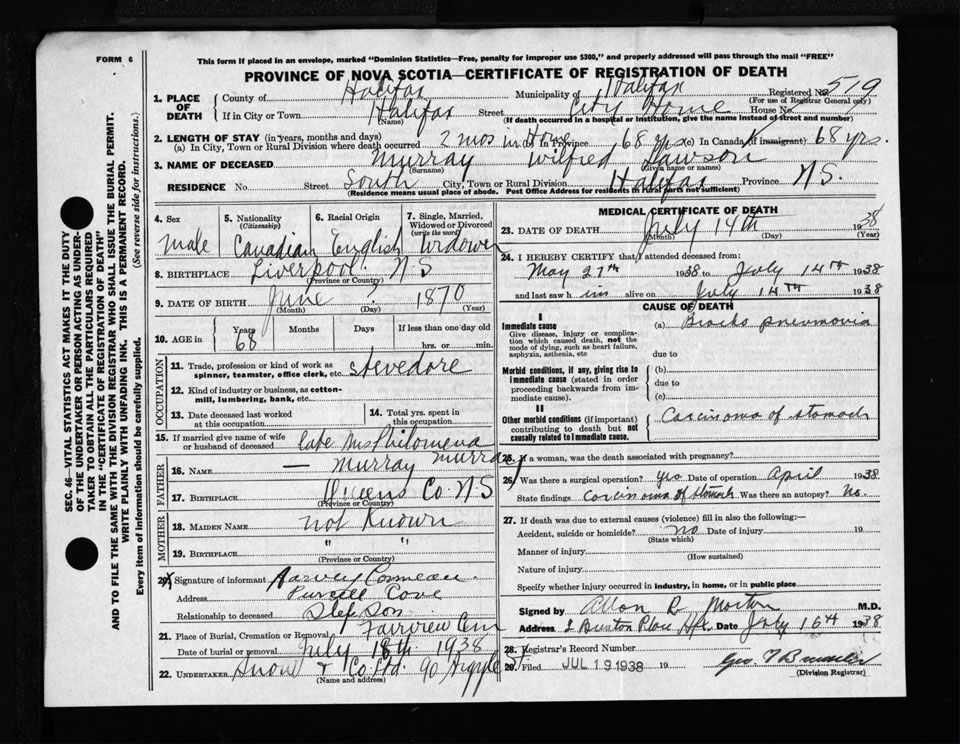 FORM 6
This form if placed in an envelope, marked "Dominion Statistics—Free, penalty for improper use $300," and properly addressed will pass through the mail "FREE"
PROVINCE OF NOVA SCOTIA—CERTIFICATE OF REGISTRATION OF DEATH
1. PLACE OF DEATH
County of Halifax Municipality of Halifax Registered No. 519
(For use of Registrar General only)
If in City or Town Halifax Street City Home House No.
(Name) (If death occurred in a hospital or institution, give the name instead of street and number)
2. LENGTH OF STAY (in years, months and days)
(a) In City, Town or Rural Division where death occurred 2 mos in Home (b) In Province 68 yrs (c) In Canada (if immigrant) 68 yrs.
3. NAME OF DECEASED Murray Wilfred Lawson
(Surname) (Given name or names)
RESIDENCE No. Street South City, Town or Rural Division Halifax Province N.S.
(Residence means usual place of abode. Post Office Address for residents in rural parts not sufficient)
4. Sex Male
5. Nationality (Citizenship) Canadian
6. Racial Origin English
7. Single, Married, Widowed or Divorced (write the word) Widower
8. BIRTHPLACE Liverpool N S
(Province or Country)
9. DATE OF BIRTH June ? 1870
(Month) (Day) (Year)
10. AGE in Years 68 Months Days If less than one day old
hrs. or min.
OCCUPATION
11. Trade, profession or kind of work as spinner, teamster, office clerk, etc. stevedore
12. Kind of industry or business, as cotton-mill, lumbering, bank, etc.
13. Date deceased last worked at this occupation
14. Total yrs. spent in this occupation
15. If married give name of wife or husband of deceased late Mrs Philomena Murray
FATHER
16. NAME — Murray
17. BIRTHPLACE Queens Co. N S
(Province or Country)
MOTHER
18. MAIDEN NAME not Known
19. BIRTHPLACE " "
(Province or Country)
20. Signature of informant Harvey Comeau
Address Purcell Cove
Relationship to deceased Step Son
21. Place of Burial, Cremation or Removal Fairview Cem
Date of burial or removal July 18th 1938
22. UNDERTAKER Snow & Co Ltd 90 Argyle St.
(Name and address)
MEDICAL CERTIFICATE OF DEATH
23. DATE OF DEATH July 14th 1938
(Month) (Day) (Year)
24. I HEREBY CERTIFY that I attended deceased from:
May 27th 1938 to July 14th 1938
and last saw him alive on July 14th 1938
CAUSE OF DEATH
I
Immediate cause
Give disease, injury or complication which caused death, not the mode of dying, such as heart failure, asphyxia, asthenia, etc
(a) Broncho pneumonia
due to
Morbid conditions, if any, giving rise to immediate cause (stated in order proceeding backwards from immediate cause).
(b)
due to
(c)
II
Other morbid conditions (if important) contributing to death but not causally related to immediate cause.
Carcinoma of stomach
25. If a woman, was the death associated with pregnancy?
26. Was there a surgical operation? Yes Date of operation April 1938
State findings Carcinoma of Stomach Was there an autopsy? No.
27. If death was due to external causes (violence) fill in also the following:—
Accident, suicide or homicide? no Date of injury 19
(State which)
Manner of injury
(How sustained)
Nature of injury
Specify whether injury occurred in industry, in home, or in public place
Signed by Allan R Morton M.D.
Address 2 Bunton Place Hfx. Date July 16th 1938
28. Registrar's Record Number
29. Filed JUL 19 1938 19
(Division Registrar)
SEC. 46—VITAL STATISTICS ACT MAKES IT THE DUTY
OF THE UNDERTAKER OR PERSON ACTING AS UNDERTAKER TO OBTAIN ALL THE PARTICULARS REQUIRED
IN THE "CERTIFICATE OF REGISTRATION OF DEATH"
AND TO FILE THE SAME WITH THE DIVISION REGISTRAR WHO SHALL ISSUE THE BURIAL PERMIT.
WRITE PLAINLY WITH UNFADING INK. THIS IS A PERMANENT RECORD.
Every item of information should be carefully supplied. (See reverse side for instructions.)